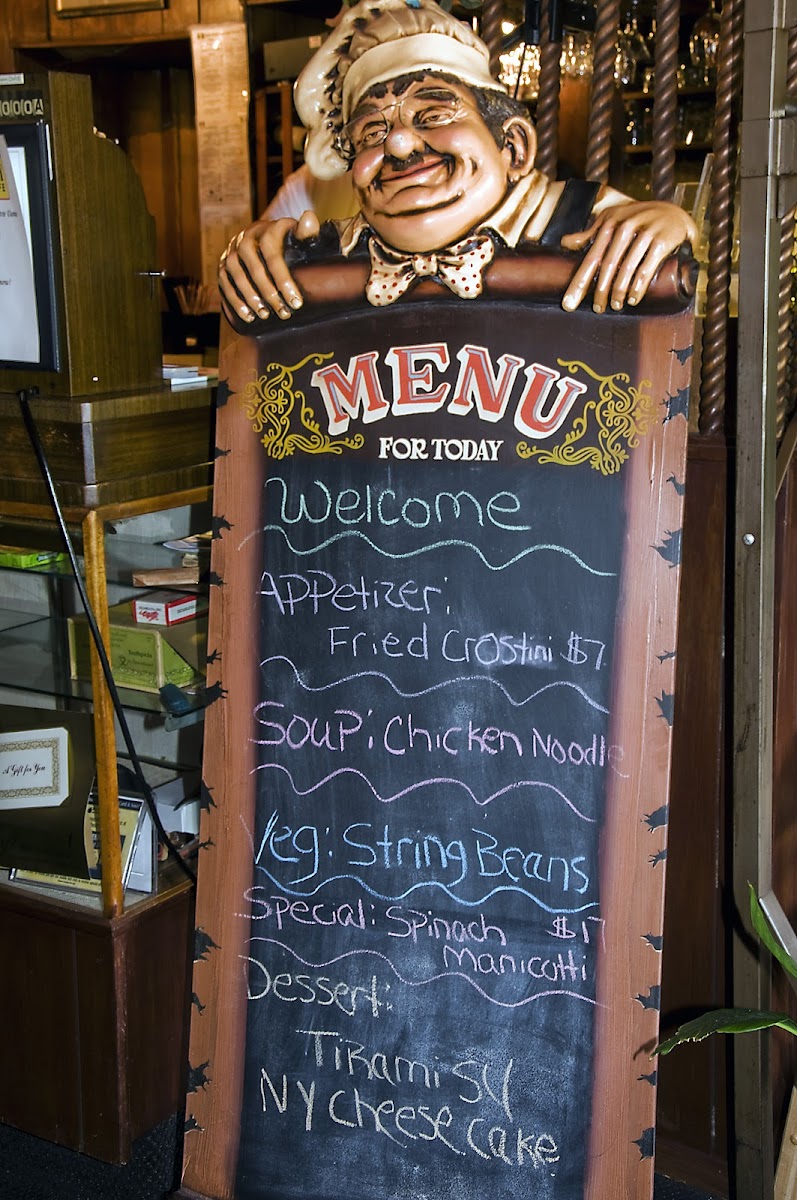 MENU
FOR TODAY
Welcome
Appetizer:
Fried Crostini $7
Soup: Chicken Noodle
Veg: String Beans
Special: Spinach $17
Manicotti
Dessert:
Tirami SU
NY Cheese Cake
A Gift for You